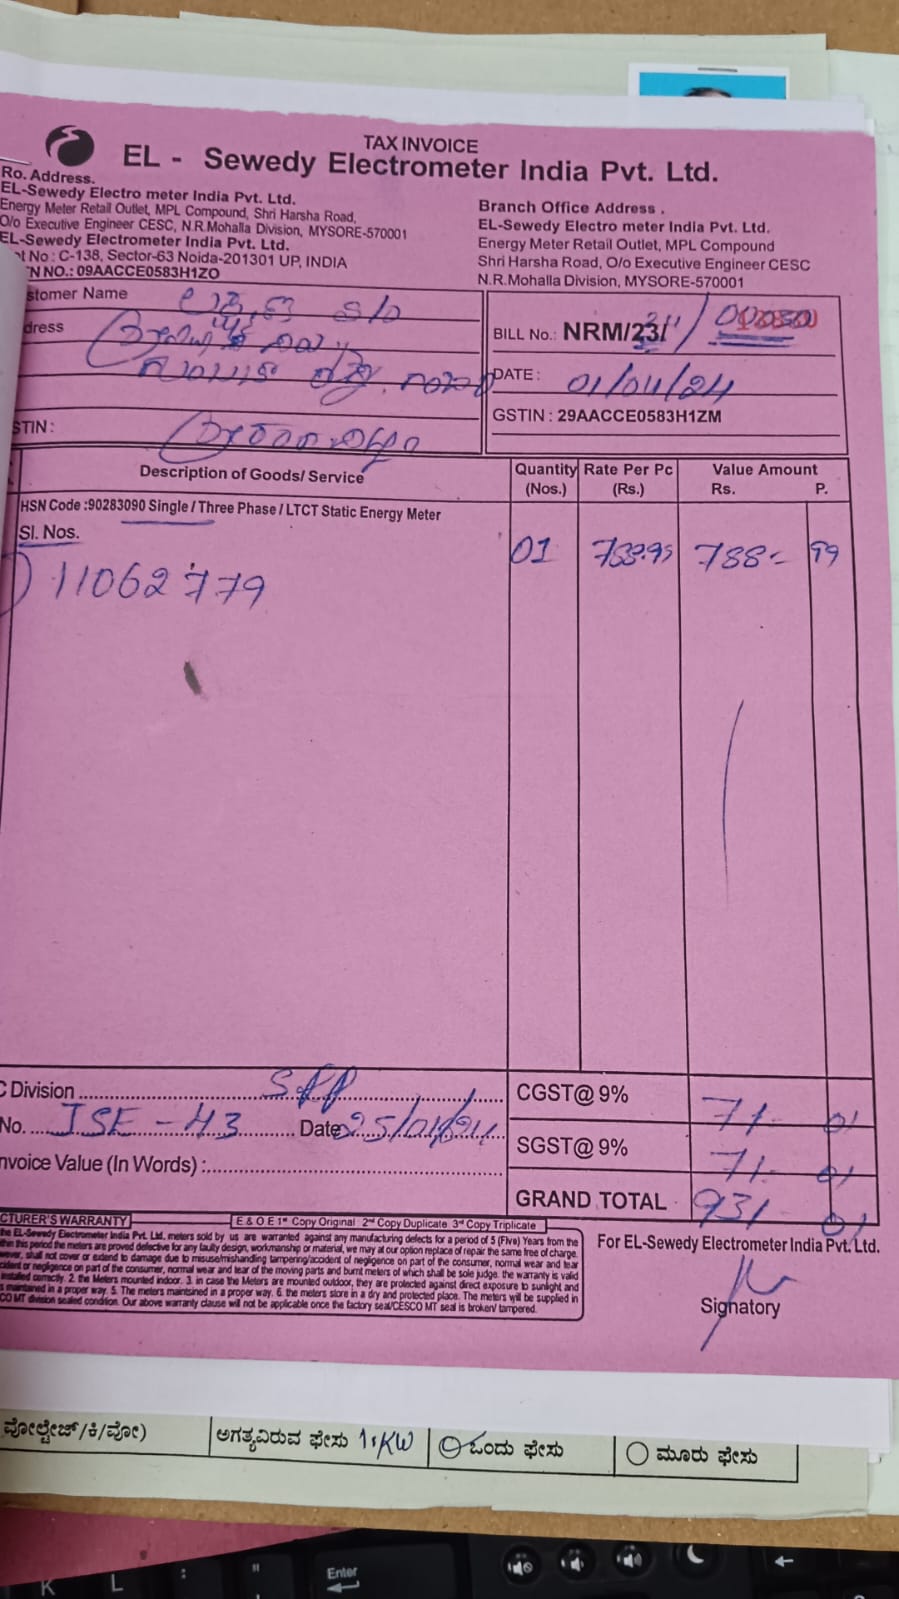 TAX INVOICE
EL - Sewedy Electrometer India Pvt. Ltd.
Ro. Address.
EL-Sewedy Electro meter India Pvt. Ltd.
Energy Meter Retail Outlet, MPL Compound, Shri Harsha Road,
O/o Executive Engineer CESC, N.R.Mohalla Division, MYSORE-570001
EL-Sewedy Electrometer India Pvt. Ltd.
No : C-138, Sector-63 Noida-201301 UP, INDIA
N NO.: 09AACCE0583H1ZO
Branch Office Address .
EL-Sewedy Electro meter India Pvt. Ltd.
Energy Meter Retail Outlet, MPL Compound
Shri Harsha Road, O/o Executive Engineer CESC
N.R.Mohalla Division, MYSORE-570001
stomer Name S/o
dress
STIN :
BILL No.: NRM/23/
DATE : 01/04/24
GSTIN : 29AACCE0583H1ZM
Description of Goods/ Service Quantity (Nos.) Rate Per Pc (Rs.) Value Amount Rs. P.
HSN Code :90283090 Single / Three Phase / LTCT Static Energy Meter
Sl. Nos.
11062779 01 788.99 788- 99
C Division
No. JSE-43 Date 25/01/24
nvoice Value (In Words) :
CGST@ 9% 71- 01
SGST@ 9% 71- 01
GRAND TOTAL 931- 01
CTURER'S WARRANTY E & O E 1st Copy Original 2nd Copy Duplicate 3rd Copy Triplicate
the EL-Sewedy Electrometer India Pvt. Ltd. meters sold by us are warranted against any manufacturing defects for a period of 5 (Five) Years from the
thin this period the meters are proved defective for any faulty design, workmanship or material, we may at our option replace of repair the same free of charge.
wever, shall not cover or extend to damage due to misuse/mishandling tampering/accident of negligence on part of the consumer, normal wear and tear
cident or negligence on part of the consumer, normal wear and tear of the moving parts and burnt meters of which shall be sole judge. the warranty is valid
installed correctly. 2. the Meters mounted indoor. 3. in case the Meters are mounted outdoor, they are protected against direct exposure to sunlight and
s maintained in a proper way. 5. The meters maintsined in a proper way. 6. the meters store in a dry and protected place. The meters will be supplied in
CO MT division sealed condition. Our above warranty clause will not be applicable once the factory seal/CESCO MT seal is broken/ tampered.
For EL-Sewedy Electrometer India Pvt. Ltd.
Signatory
ವೋಲ್ಟೇಜ್/ಕಿ/ವೋ) ಅಗತ್ಯವಿರುವ ಫೇಸು 1.KW ಒಂದು ಫೇಸು ಮೂರು ಫೇಸು
K L : " Enter